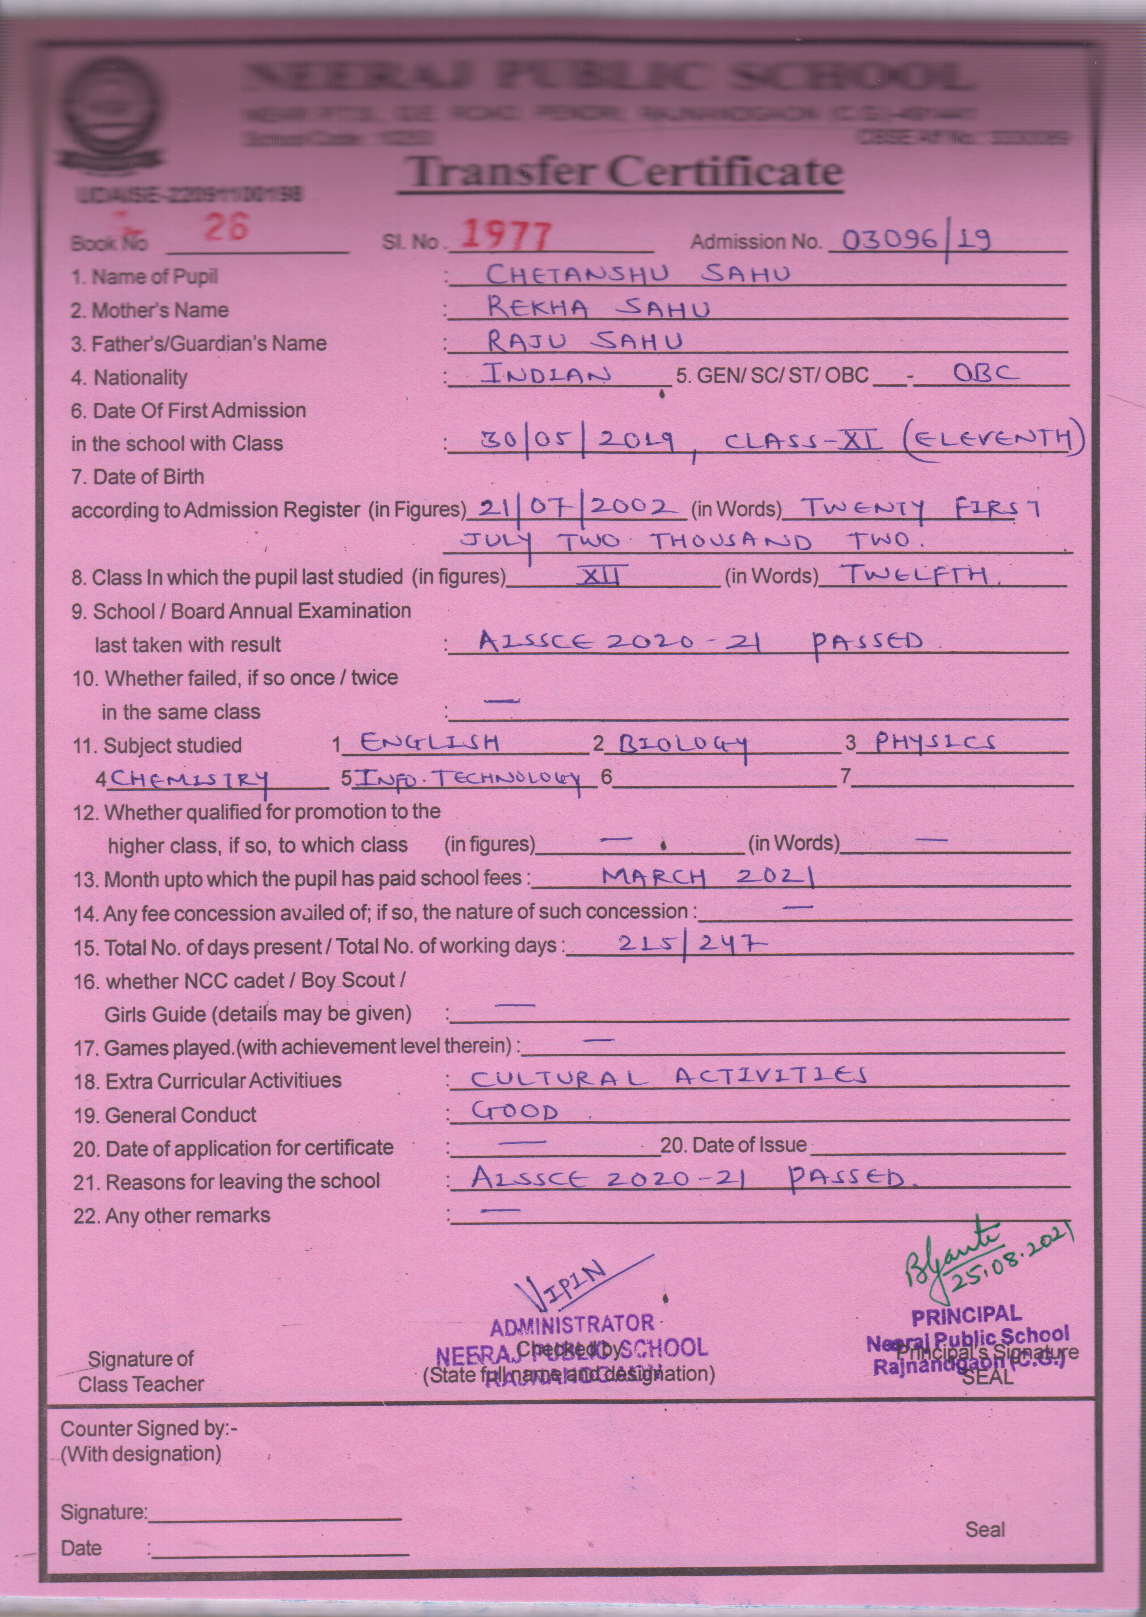 NEERAJ PUBLIC SCHOOL
NEAR P.T.S., G.E. ROAD, PENDRI, RAJNANDGAON (C.G.)-491441
School Code :
CBSE Aff No. :
Transfer Certificate
UDAISE-22091100198
Book No 26 Sl. No . 1977 Admission No. 03096/19
1. Name of Pupil : CHETANSHU SAHU
2. Mother's Name : REKHA SAHU
3. Father's/Guardian's Name : RAJU SAHU
4. Nationality : INDIAN 5. GEN/ SC/ ST/ OBC - OBC
6. Date Of First Admission
in the school with Class : 30/05/2019, CLASS-XI (ELEVENTH)
7. Date of Birth
according to Admission Register (in Figures) 21/07/2002 (in Words) TWENTY FIRST
JULY TWO THOUSAND TWO.
8. Class In which the pupil last studied (in figures) XII (in Words) TWELFTH.
9. School / Board Annual Examination
last taken with result : AISSCE 2020-21 PASSED.
10. Whether failed, if so once / twice
in the same class : —
11. Subject studied 1 ENGLISH 2 BIOLOGY 3 PHYSICS
4 CHEMISTRY 5 INFO. TECHNOLOGY 6 7
12. Whether qualified for promotion to the
higher class, if so, to which class (in figures) — (in Words) —
13. Month upto which the pupil has paid school fees : MARCH 2021
14. Any fee concession availed of; if so, the nature of such concession : —
15. Total No. of days present / Total No. of working days : 215/247
16. whether NCC cadet / Boy Scout /
Girls Guide (details may be given) : —
17. Games played.(with achievement level therein) : —
18. Extra Curricular Activitiues : CULTURAL ACTIVITIES
19. General Conduct : GOOD.
20. Date of application for certificate : — 20. Date of Issue
21. Reasons for leaving the school : AISSCE 2020-21 PASSED.
22. Any other remarks : —
VIPIN
25.08.2021
ADMINISTRATOR
NEERAJ PUBLIC SCHOOL
RAJNANDGAON
PRINCIPAL
Neeraj Public School
Rajnandgaon (C.G.)
Signature of
Class Teacher
Checked by
(State full name and designation)
Principal's Signature
SEAL
Counter Signed by:-
(With designation)
Signature:
Seal
Date :